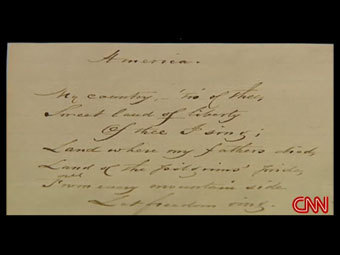 America.
My country, – 'tis of thee,
Sweet land of liberty
Of thee I sing;
Land where my fathers died,
Land of the pilgrims' pride,
From every mountain side
Let freedom ring.
CNN